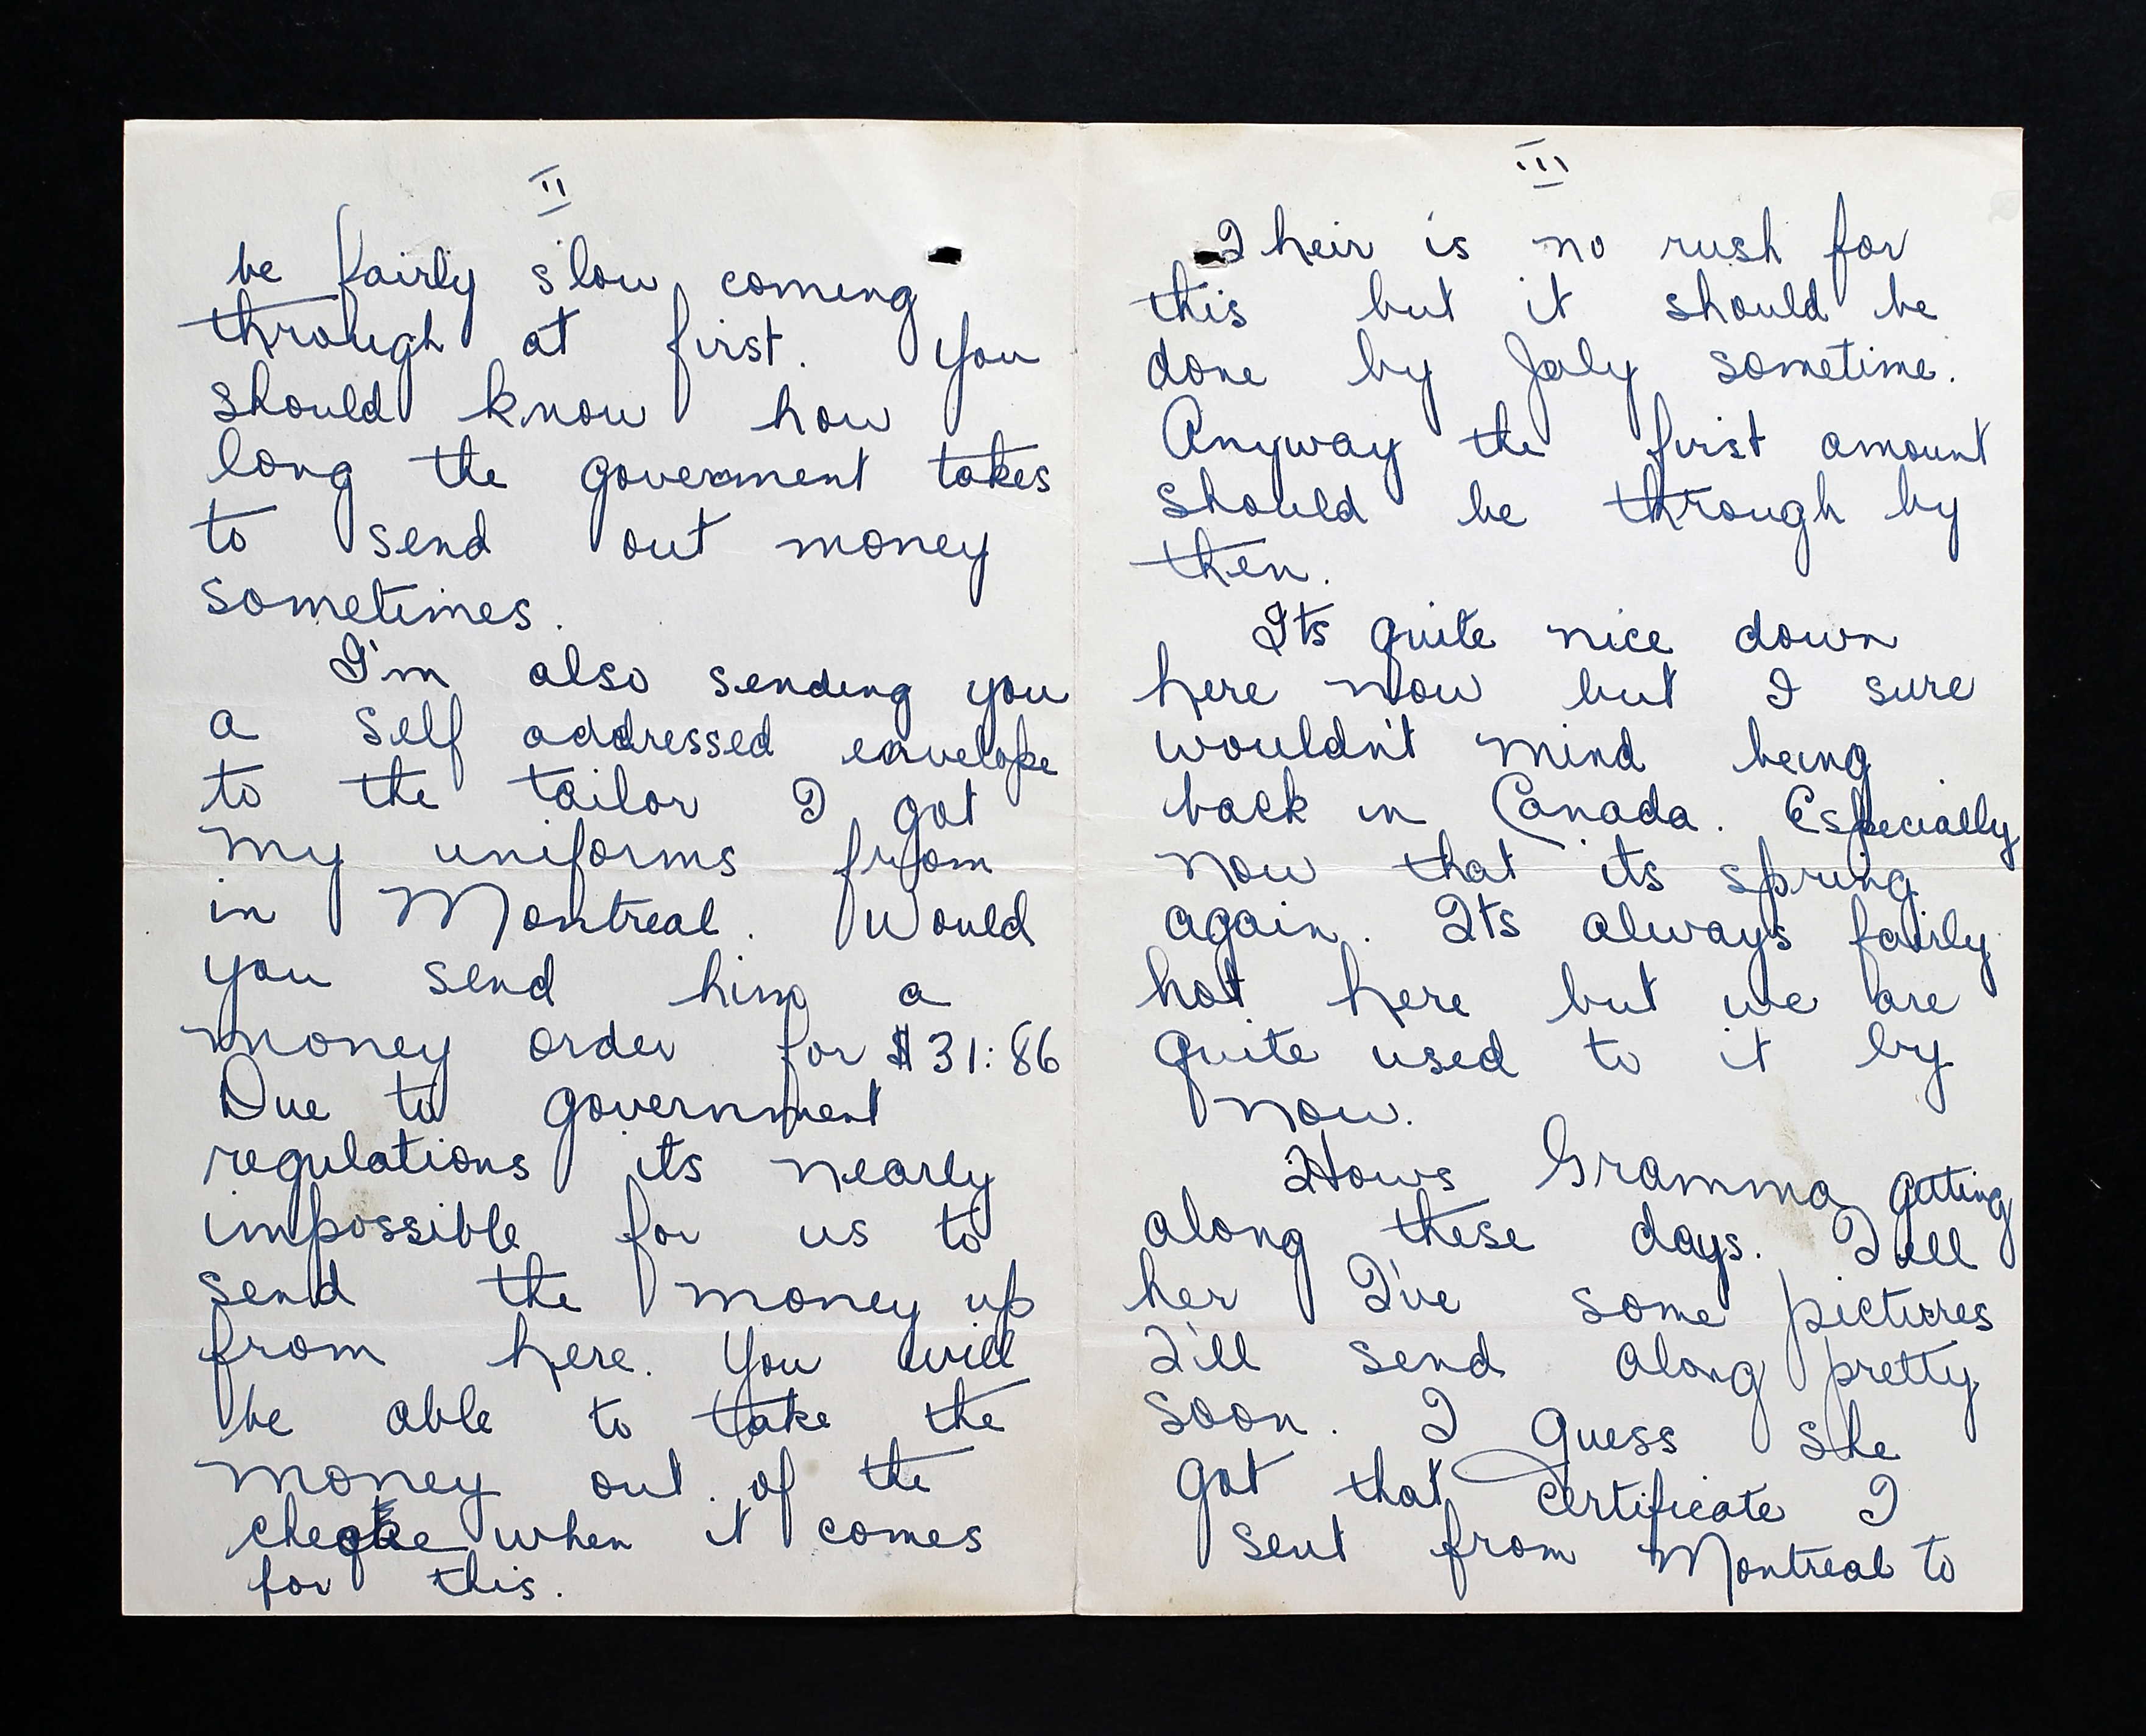 II
be fairly slow coming
through at first. You
should know how
long the goverment takes
to send out money
sometimes.
I'm also sending you
a self addressed envelope
to the tailor I got
my uniforms from
in Montreal. Would
you send him a
money order for $31:86
Due to government
regulations its nearly
impossible for us to
send the money up
from here. You will
be able to take the
money out of the
cheque when it comes
for this.
III
Their is no rush for
this but it should be
done by July sometime.
Anyway the first amount
should be through by
then.
Its quite nice down
here now but I sure
wouldn't mind being
back in Canada. Especially
now that its spring
again. Its always fairly
hot here but we are
quite used to it by
now.
Hows Gramma getting
along these days. Tell
her I've some pictures
I'll send along pretty
soon. I guess she
got that certificate I
sent from Montreal to